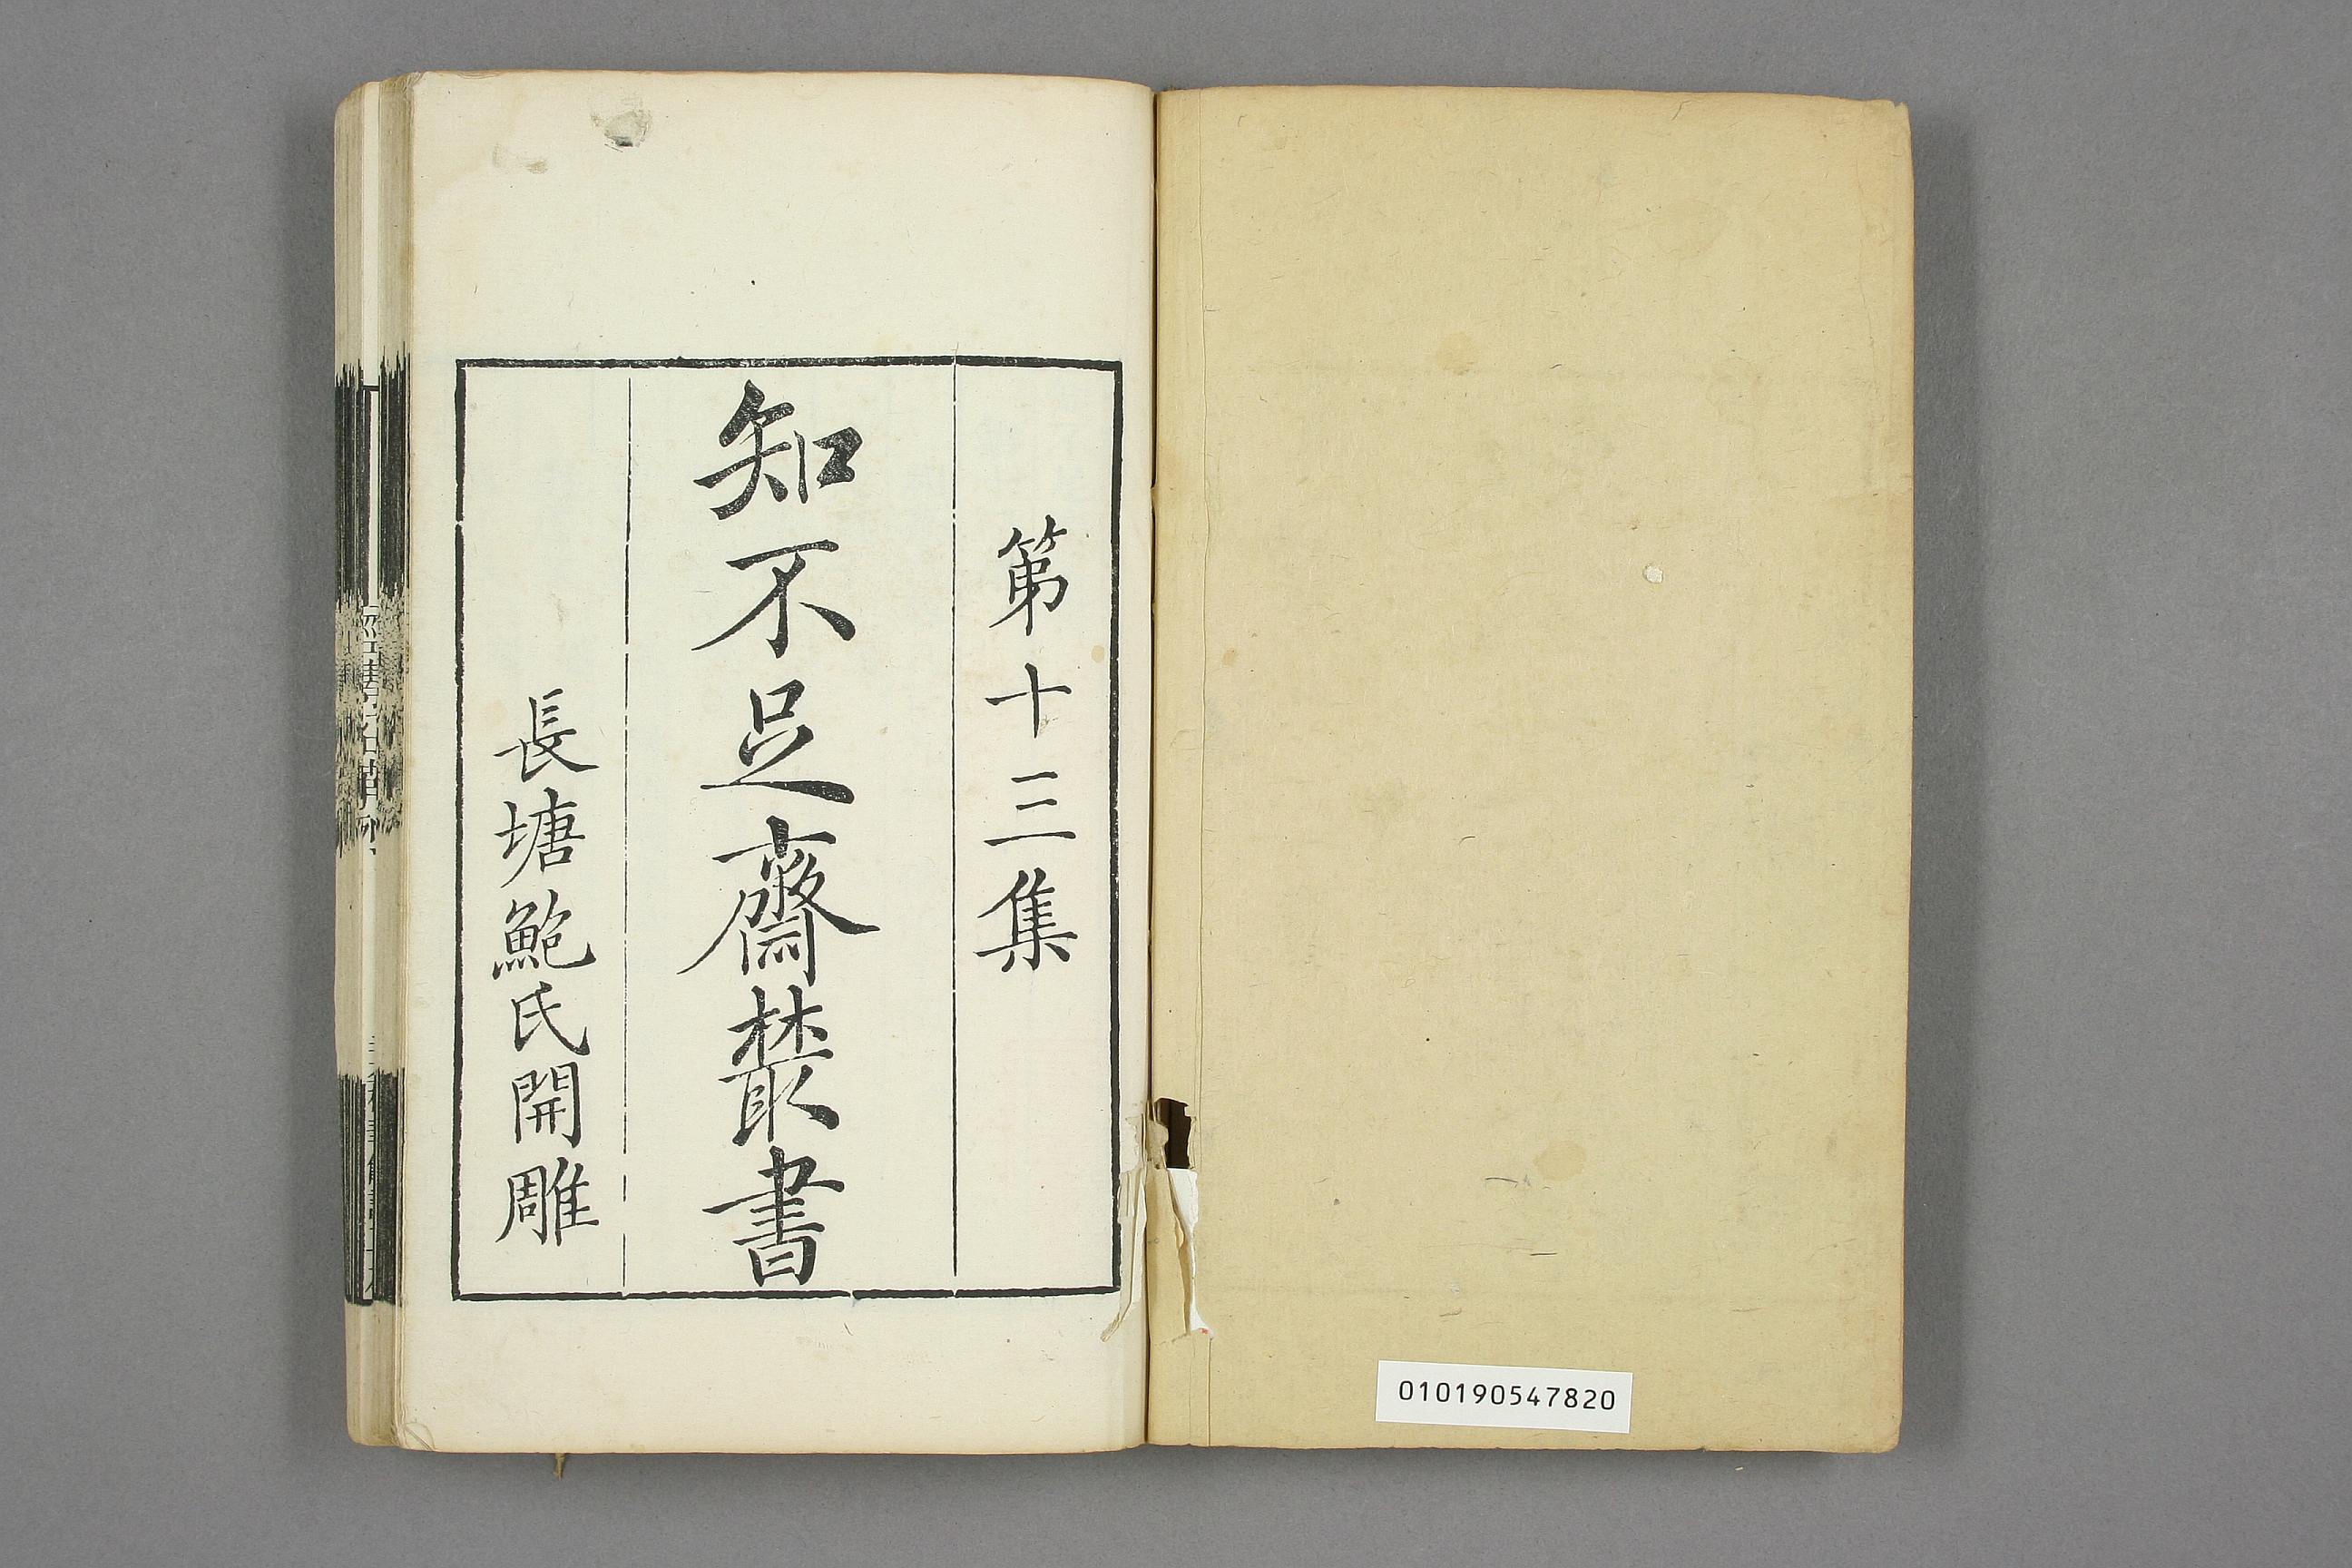 第十三集
知不足齋叢書
長塘鮑氏開雕
010190547820